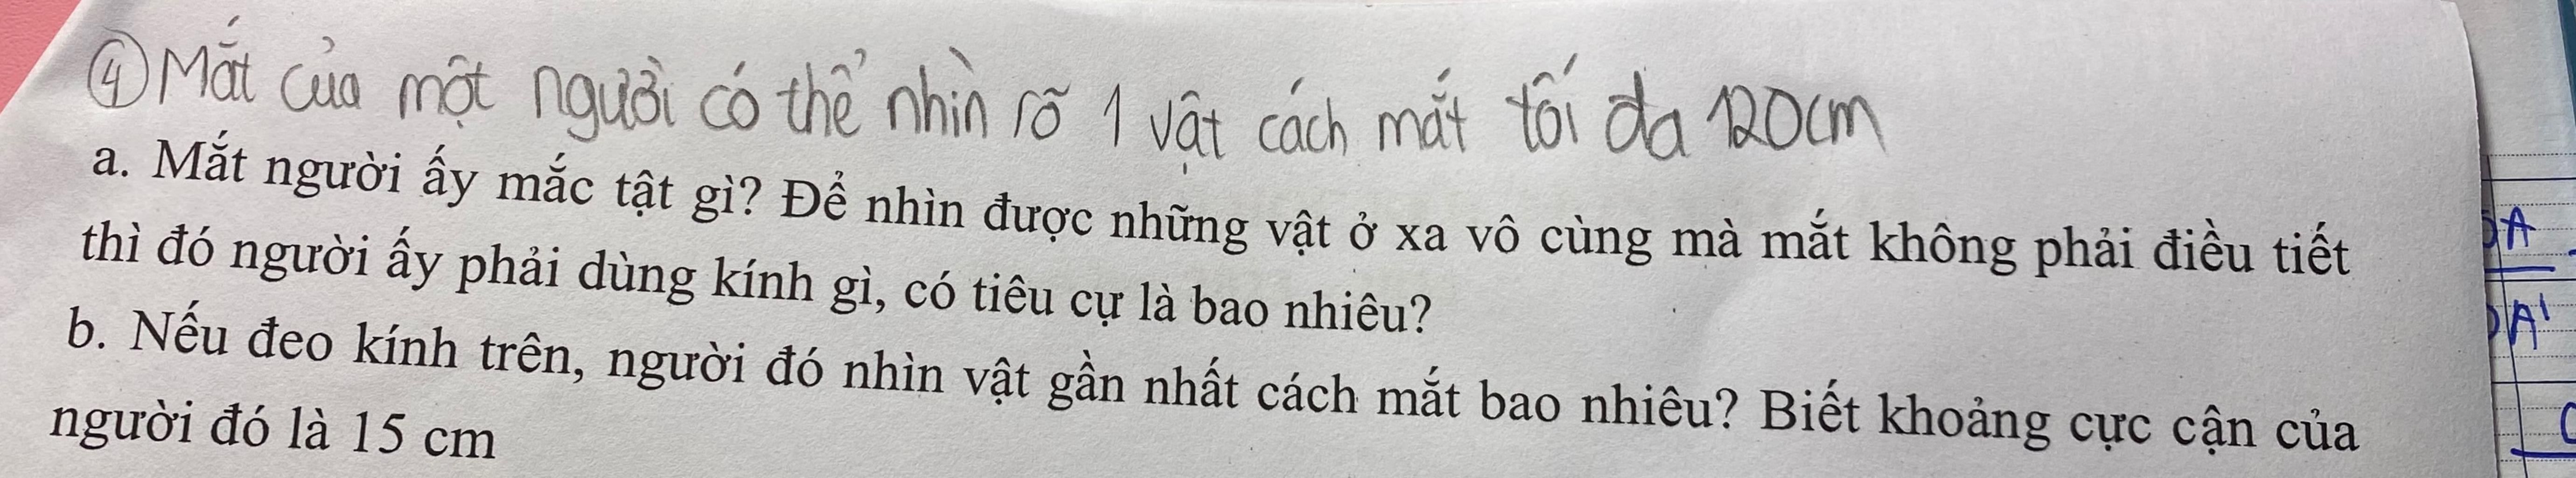 ④ Mắt của một người có thể nhìn rõ 1 vật cách mắt tối đa 120cm
a. Mắt người ấy mắc tật gì? Để nhìn được những vật ở xa vô cùng mà mắt không phải điều tiết
thì đó người ấy phải dùng kính gì, có tiêu cự là bao nhiêu?
b. Nếu đeo kính trên, người đó nhìn vật gần nhất cách mắt bao nhiêu? Biết khoảng cực cận của
người đó là 15 cm
OA
OA'